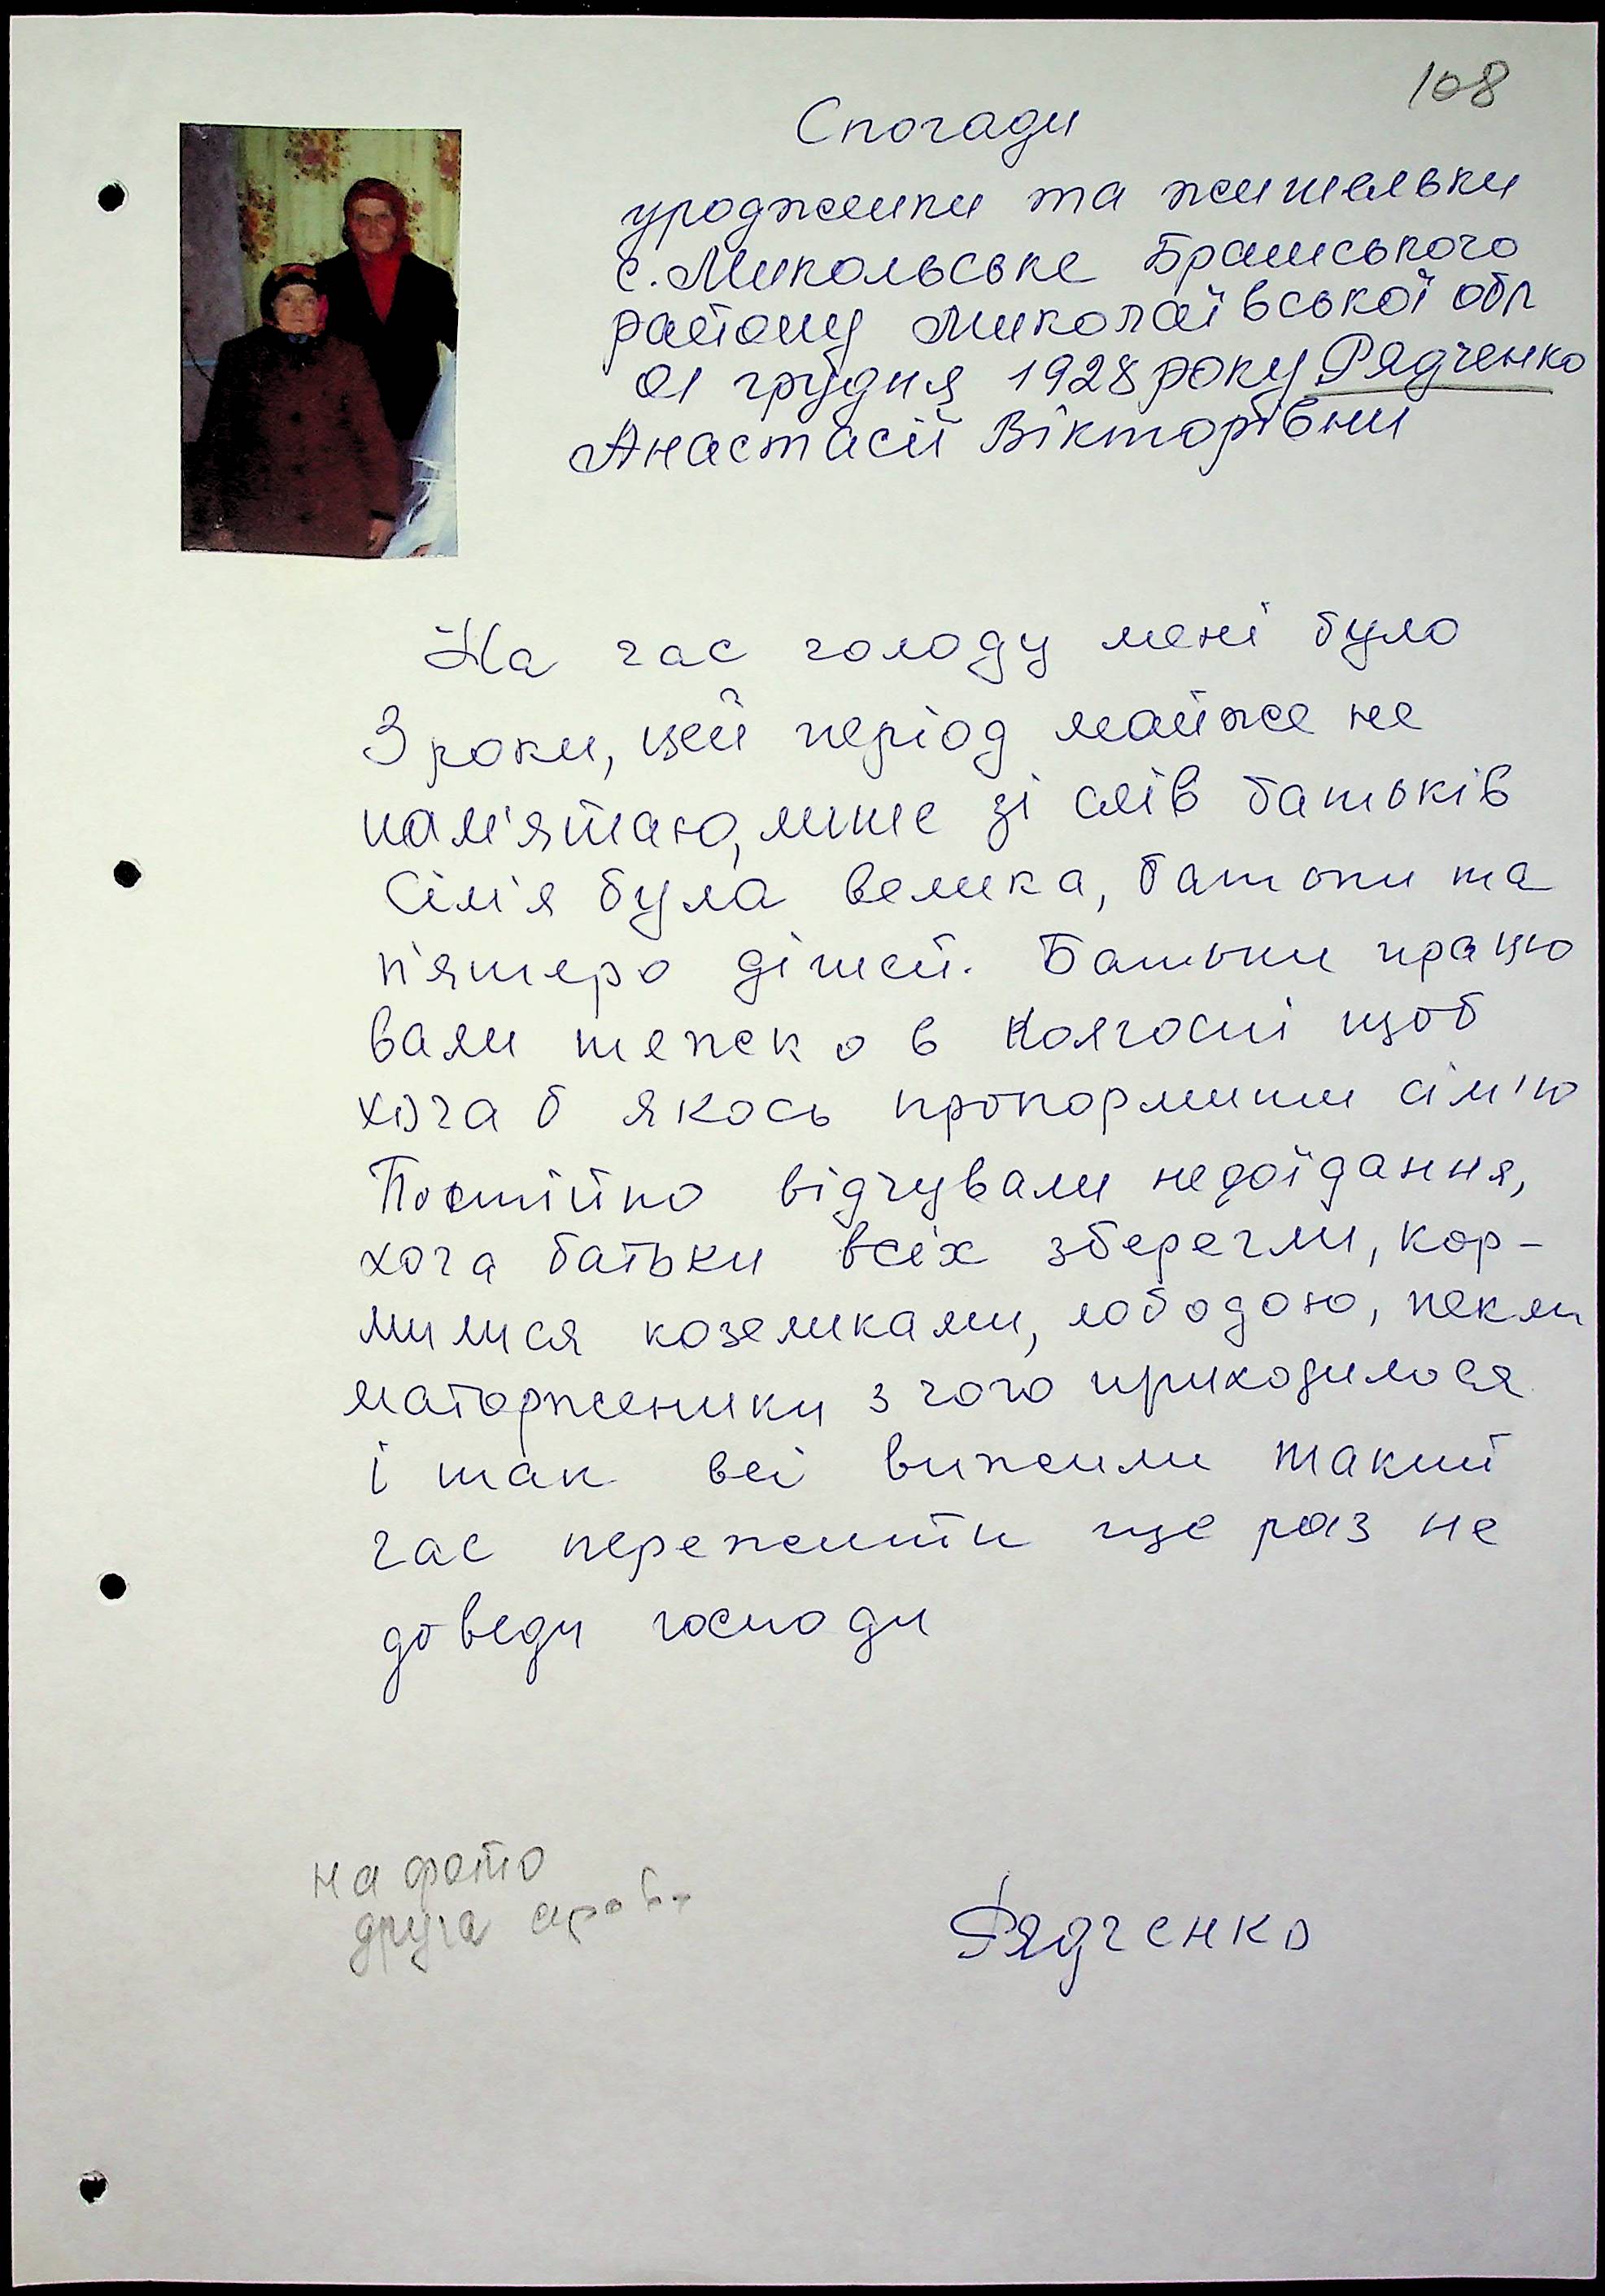 108
Спогади
уродженки та жительки
с. Микольське Братського
району Миколаївської обл
01 грудня 1928 року Рядченко
Анастасії Вікторівни
На час голоду мені було
3 роки, цей період майже не
пам'ятаю, лише зі слів батьків
Сім'я була велика, батьки та
п'ятеро дітей. Батьки працю
вали тежско в Колгоспі щоб
хоча б якось прокормити сім'ю
Постійно відчували недоїдання,
хоча батьки всіх зберегли, кор-
милися козеликами, лободою, пекли
маторженики з чого приходилося
і так всі вижили такий
час пережити ще раз не
доведи господи
на фото
друга
Рядченко